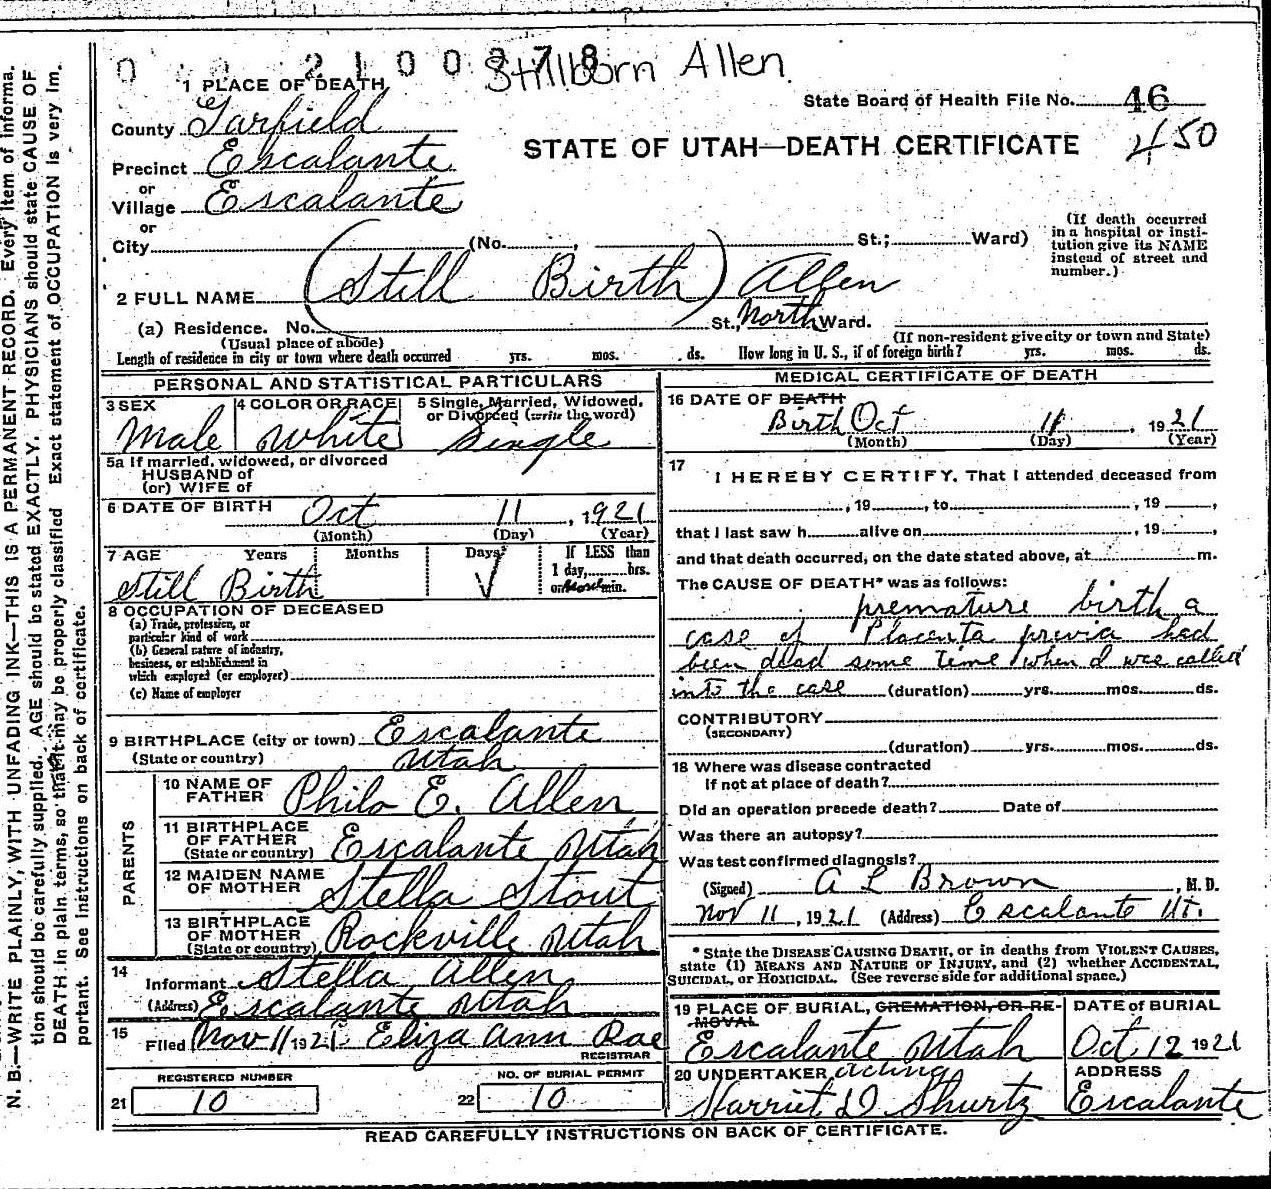 Stillborn Allen.
1 PLACE OF DEATH
County Garfield
State Board of Health File No. 46
450
STATE OF UTAH—DEATH CERTIFICATE
Precinct Escalante
or
Village Escalante
or
City (No. , St.; Ward)
(If death occurred in a hospital or insti-
tution give its NAME
instead of street and
number.)
2 FULL NAME (Still Birth) Allen
(a) Residence. No. St., North Ward.
(Usual place of abode)
(If non-resident give city or town and State)
Length of residence in city or town where death occurred yrs. mos. ds. How long in U. S., if of foreign birth? yrs. mos. ds.
PERSONAL AND STATISTICAL PARTICULARS
3 SEX
Male
4 COLOR OR RACE
White
5 Single, Married, Widowed,
or Divorced (write the word)
Single
5a If married, widowed, or divorced
HUSBAND of
(or) WIFE of
6 DATE OF BIRTH Oct 11, 1921
(Month) (Day) (Year)
7 AGE Years Months Days If LESS than
1 day, hrs.
or min.
Still Birth
8 OCCUPATION OF DECEASED
(a) Trade, profession, or
particular kind of work
(b) General nature of industry,
business, or establishment in
which employed (or employer)
(c) Name of employer
9 BIRTHPLACE (city or town) Escalante
(State or country) Utah
PARENTS
10 NAME OF
FATHER Philo E. Allen
11 BIRTHPLACE
OF FATHER
(State or country) Escalante Utah
12 MAIDEN NAME
OF MOTHER Stella Stout
13 BIRTHPLACE
OF MOTHER
(State or country) Rockville Utah
14
Informant Stella Allen
(Address) Escalante Utah
15
Filed Nov 11 1921 Eliza Ann Rae
REGISTRAR
REGISTERED NUMBER
21 10
NO. OF BURIAL PERMIT
22 10
MEDICAL CERTIFICATE OF DEATH
16 DATE OF DEATH
Birth Oct 11, 1921
(Month) (Day) (Year)
17
I HEREBY CERTIFY, That I attended deceased from
, 19 , to , 19 ,
that I last saw h alive on , 19 ,
and that death occurred, on the date stated above, at m.
The CAUSE OF DEATH* was as follows:
premature birth a
case of Placenta previa had
been dead some time when I was called
into the case (duration) yrs. mos. ds.
CONTRIBUTORY
(SECONDARY)
(duration) yrs. mos. ds.
18 Where was disease contracted
If not at place of death?
Did an operation precede death? Date of
Was there an autopsy?
Was test confirmed diagnosis?
(Signed) A L Brown, M. D.
Nov 11, 1921 (Address) Escalante Ut.
* State the DISEASE CAUSING DEATH, or in deaths from VIOLENT CAUSES,
state (1) MEANS AND NATURE OF INJURY, and (2) whether ACCIDENTAL,
SUICIDAL, or HOMICIDAL. (See reverse side for additional space.)
19 PLACE OF BURIAL, CREMATION, OR RE-
MOVAL
Escalante Utah
DATE of BURIAL
Oct, 12 1921
20 UNDERTAKER acting
Harriet D Shurtz
ADDRESS
Escalante
READ CAREFULLY INSTRUCTIONS ON BACK OF CERTIFICATE.
N. B.—WRITE PLAINLY, WITH UNFADING INK—THIS IS A PERMANENT RECORD. Every item of informa-
tion should be carefully supplied. AGE should be stated EXACTLY. PHYSICIANS should state CAUSE OF
DEATH in plain terms, so that it may be properly classified. Exact statement of OCCUPATION is very im-
portant. See instructions on back of certificate.